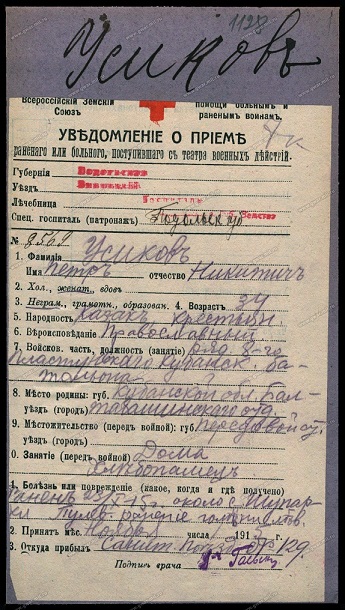 1128
Усиковъ
Всероссійскій Земскій
Союзъ
помощи больнымъ и
раненымъ воинамъ.
УВѢДОМЛЕНІЕ О ПРІЕМѢ
раненаго или больного, поступившаго съ театра военныхъ дѣйствій.
Губернія Подольская
Уѣздъ
Лѣчебница
Спец. госпиталь (патронажъ) Подольск Земства
№ 8569
1. Фамилія Усиковъ
Имя Петръ отчество Никитичъ
2. Хол., женат., вдовъ
3. Неграм., грамотн., образован. 4. Возрастъ 34
5. Народность Казакъ
6. Вѣроисповѣданіе Православный
7. Войсков. часть, должность (занятіе) ряд 8-го
Пластунскаго Кубанск. Ба-
тальона
8. Мѣсто родины: губ. Кубанской обл. Бал-
уѣздъ (городъ) талпашинскаго отд.
9. Мѣстожительство (передъ войной): губ. Передовой ст.
уѣздъ (городъ)
0. Занятіе (передъ войной) Дома
Хлѣбопашецъ
1. Болѣзнь или поврежденіе (какое, когда и гдѣ получено)
Раненъ около с.
Пулев. раненіе
2. Принятъ мѣс. Ноября числа 191
3. Откуда прибылъ Санит. 129
Подпись врача